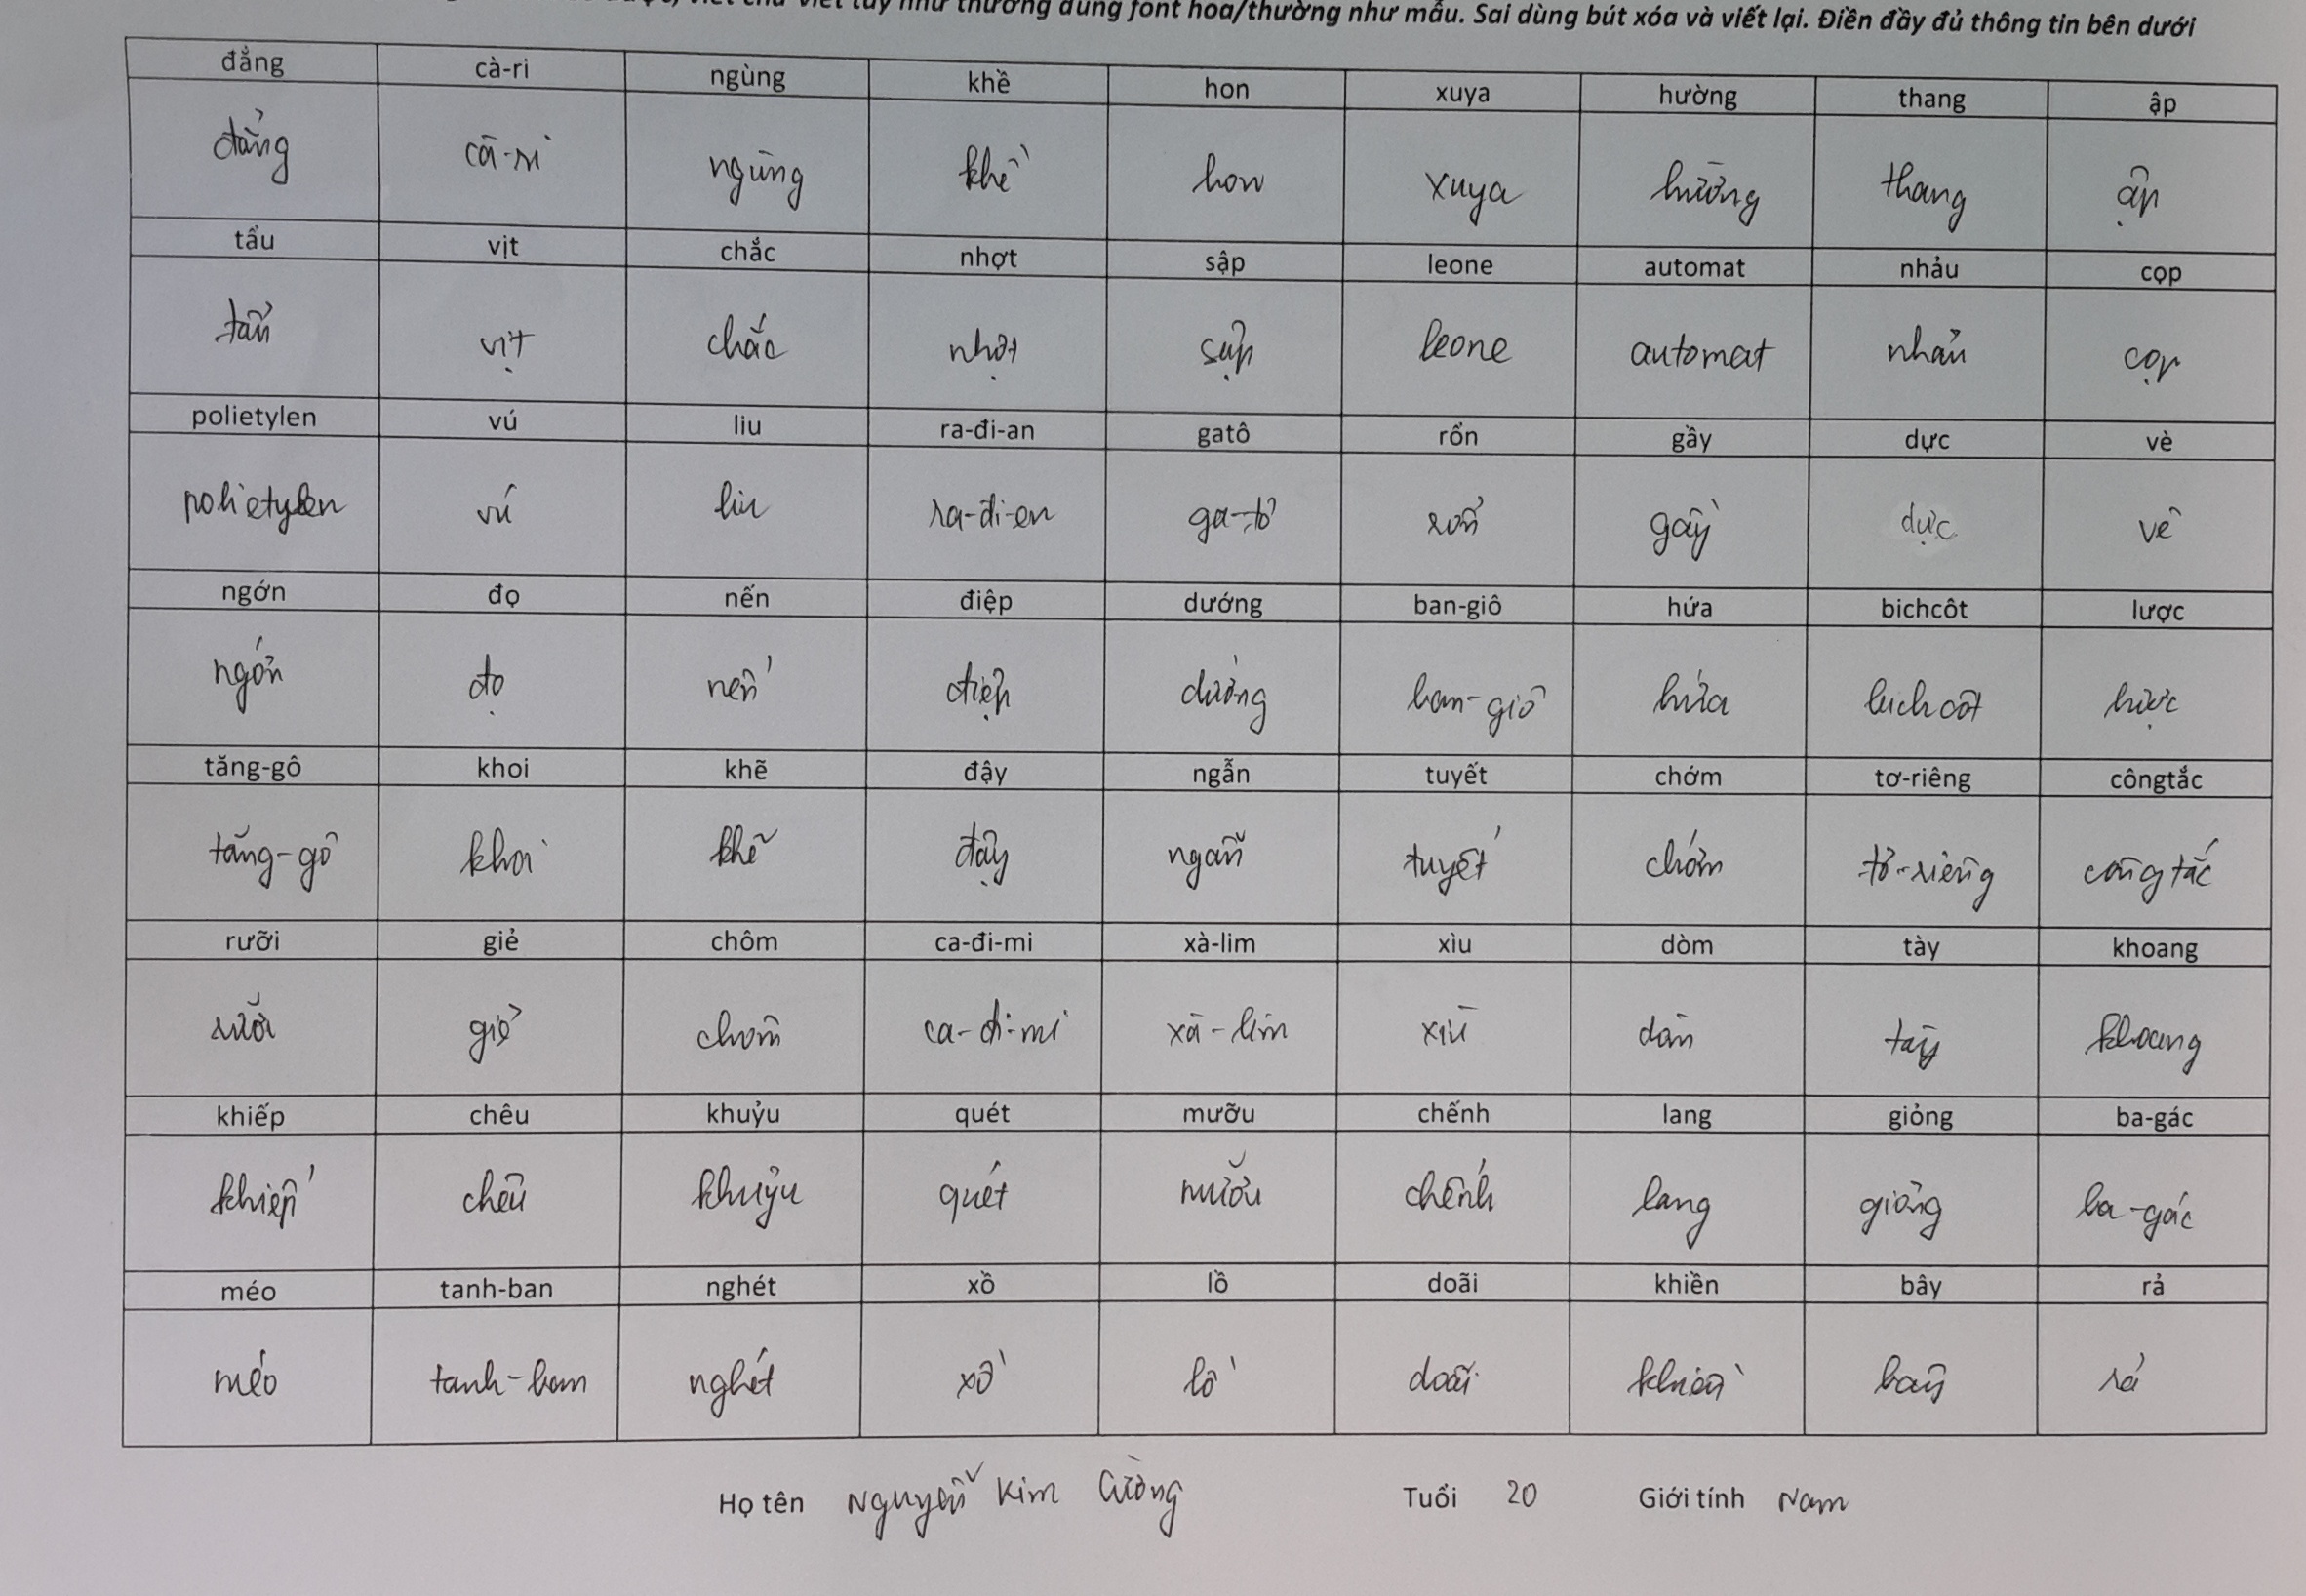 viết chữ viết tay như thường dùng font hoa/thường như mẫu. Sai dùng bút xóa và viết lại. Điền đầy đủ thông tin bên dưới
đẳng cà-ri ngùng khề hon xuya hường thang ập
đẳng cà-ri ngùng khề hon xuya hường thang ập
tẩu vịt chắc nhợt sập leone automat nhảu cọp
tẩu vịt chắc nhợt sập leone automat nhảu cọp
polietylen vú liu ra-đi-an gatô rổn gầy dực vè
polietylen vú liu ra-đi-an ga-tô rổn gầy dực vè
ngớn đọ nến điệp dướng ban-giô hứa bichcôt lược
ngớn đọ nến điệp dướng ban-giô hứa bichcôt lược
tăng-gô khoi khẽ đậy ngẫn tuyết chớm tơ-riêng côngtắc
tăng-gô khoi khẽ đậy ngẫn tuyết chớm tơ-riêng côngtắc
rưỡi giẻ chôm ca-đi-mi xà-lim xìu dòm tày khoang
rưỡi giẻ chôm ca-đi-mi xà-lim xìu dòm tày khoang
khiếp chêu khuỷu quét mưỡu chếnh lang giỏng ba-gác
khiếp chêu khuỷu quét mưỡu chếnh lang giỏng ba-gác
méo tanh-ban nghét xồ lồ doãi khiền bây rả
méo tanh-ban nghét xồ lồ doãi khiền bây rả
Họ tên Nguyễn Kim Cường Tuổi 20 Giới tính Nam